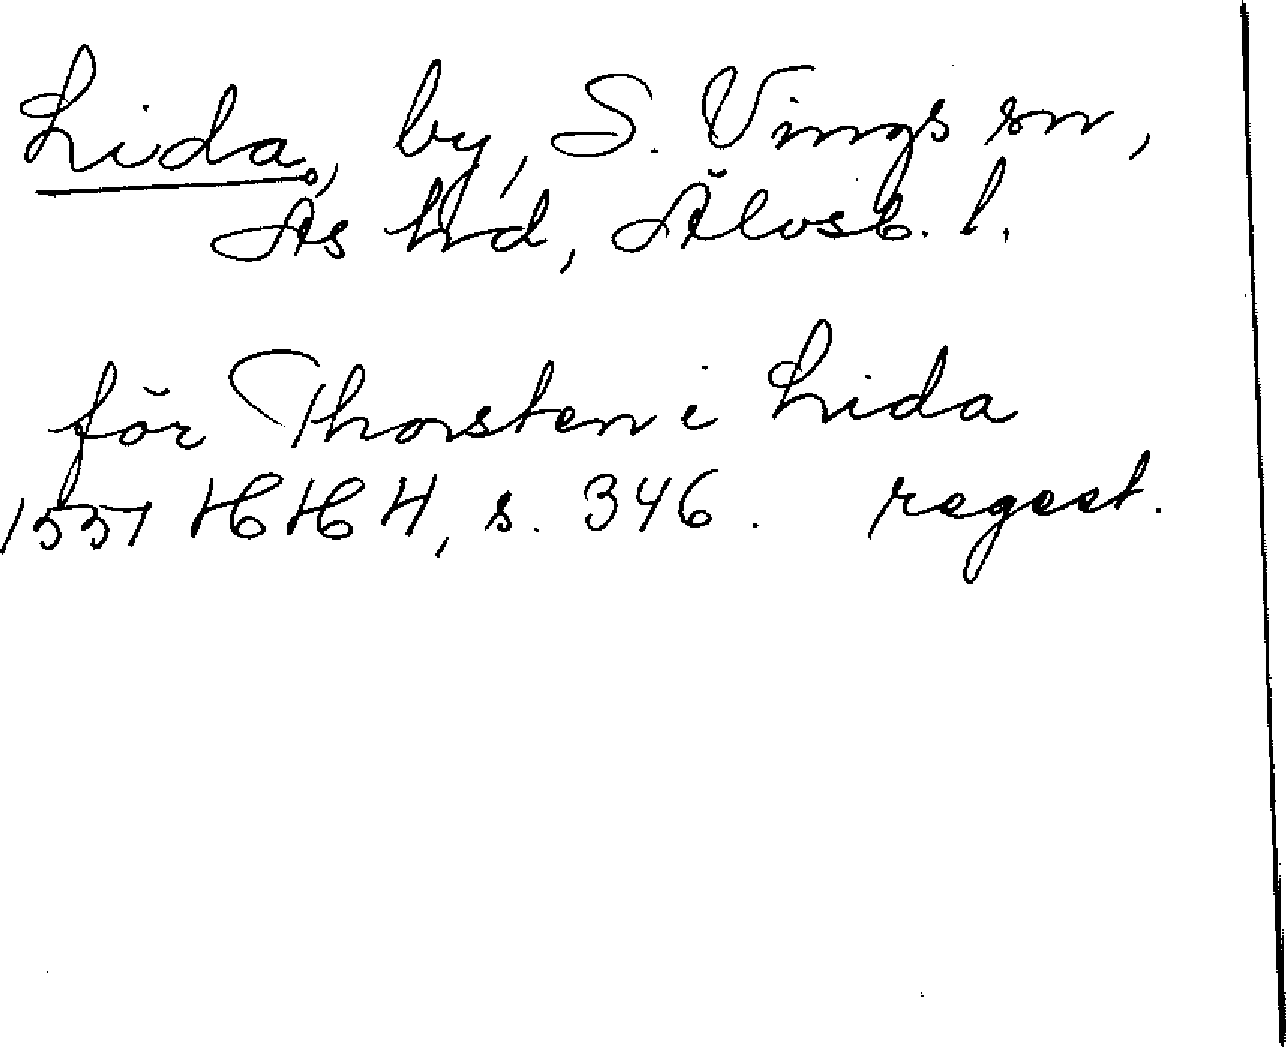 Lida, by, S. Vings sn,
Ås hd, Älvsb. l.
för Thorsten i Lida
1557 HH H, s. 346. regest.